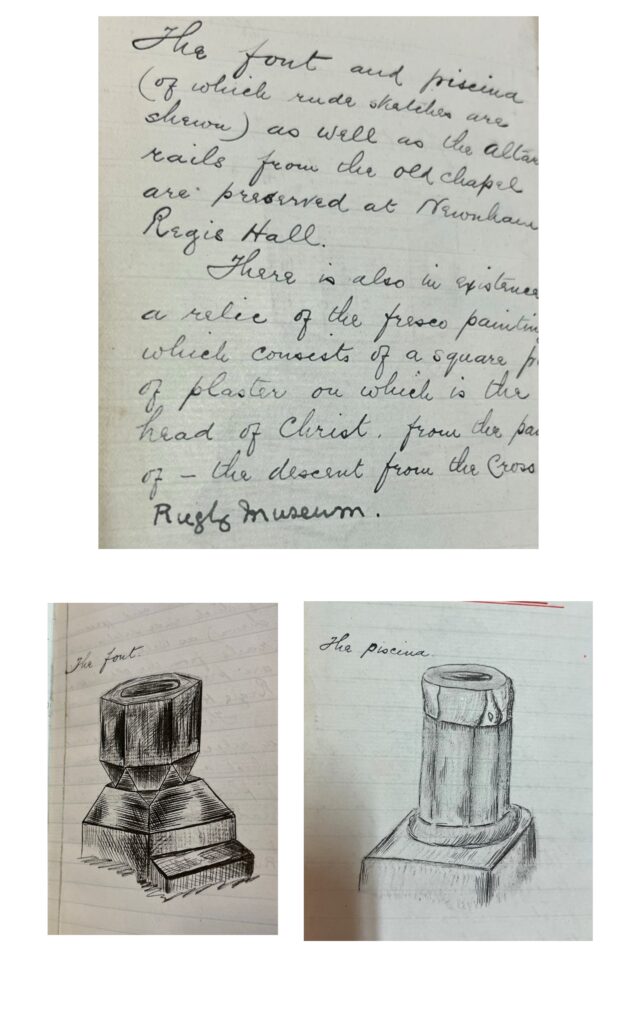 The font and piscina
(of which rude sketches are
shewn) as well as the altar
rails from the old chapel
are preserved at Newnham
Regis Hall.
There is also in existence
a relic of the fresco paintin
which consists of a square p
of plaster on which is the
head of Christ. from the pa
of – the descent from the Cross
Rugby Museum.
The font.
The piscina.